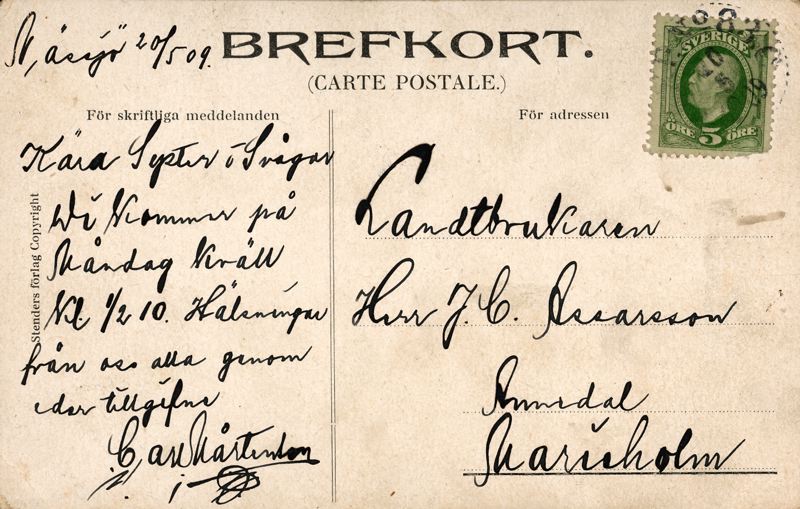 20/5 09.
BREFKORT.
(CARTE POSTALE.)
SVERIGE
ÖRE 5 ÖRE
För skriftliga meddelanden
För adressen
Stenders förlag Copyright
Kära Syster i Svågar
Wi Kommer på
Måndag Kväll
Kl 1/2 10. Hälsningar
från oss alla genom
eder tillgifne
Carl Mårtenson
Landtbrukaren
Herr J. C. Assarsson
Annedal
Marieholm